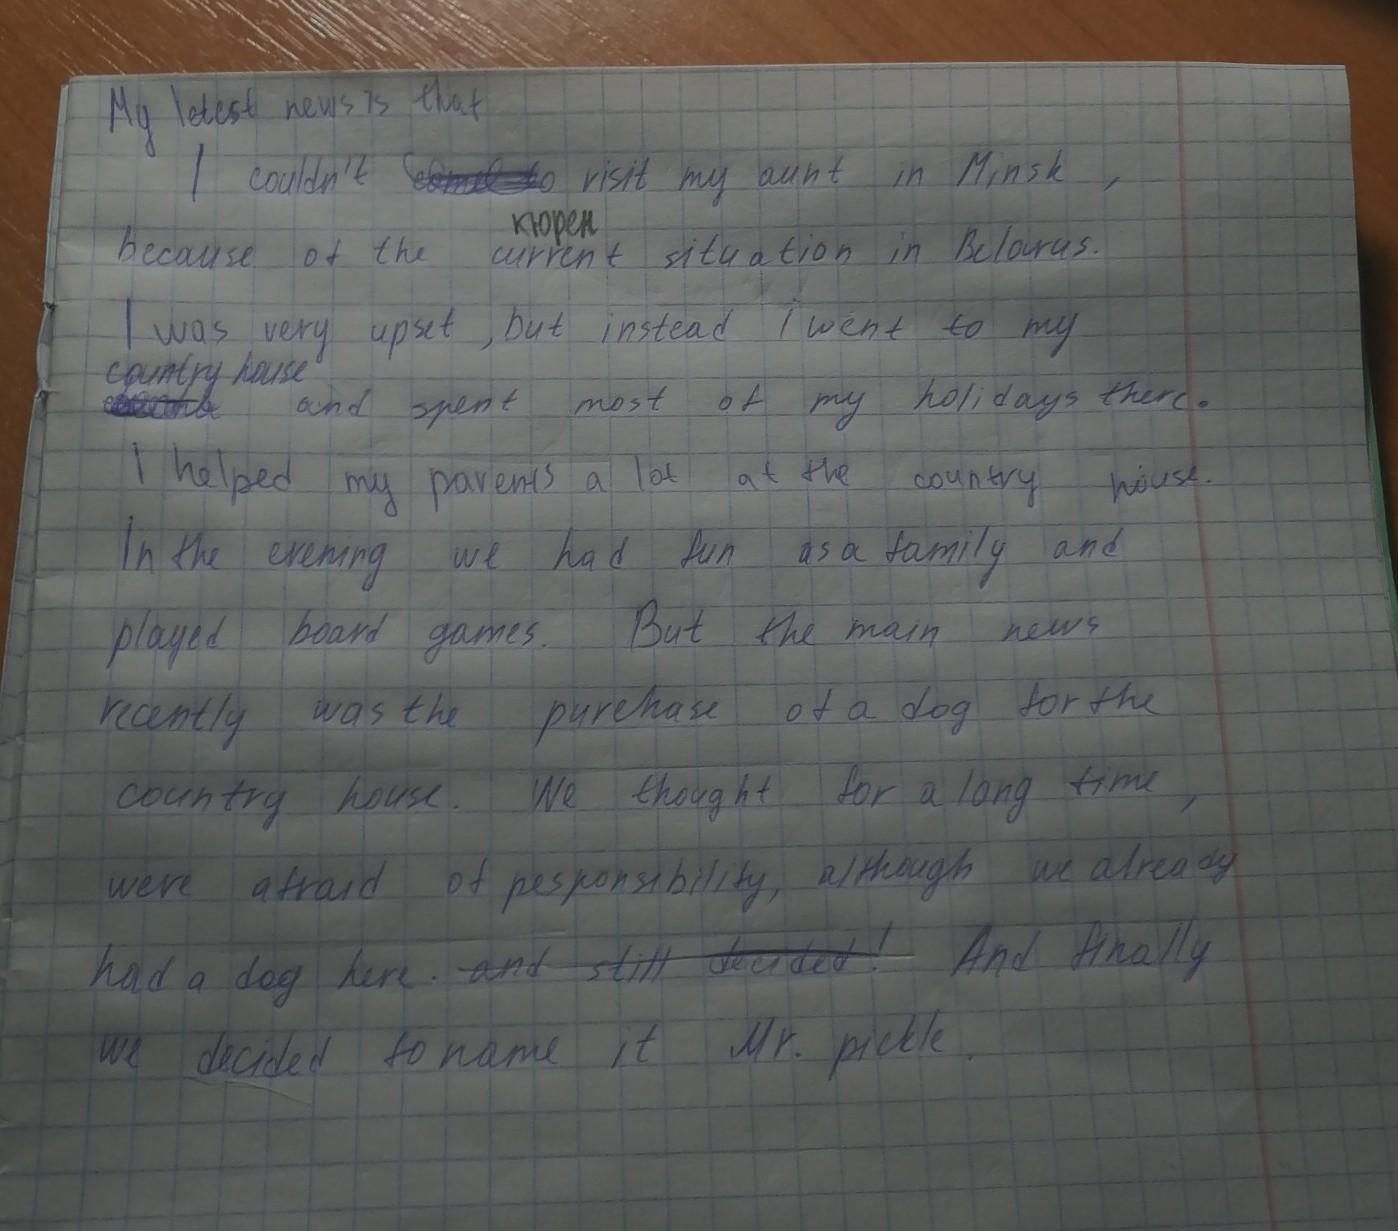 My letest news is that
I couldn't visit my aunt in Minsk,
кюрен
because of the current situation in Belarus.
I was very upset, but instead i went to my
country house
and spent most of my holidays there.
I helped my parents a lot at the country house.
In the evening we had fun as a family and
played board games. But the main news
recently was the purchase of a dog for the
country house. We thought for a long time,
were afraid of responsibility, although we already
had a dog here. and still decided! And finally
we decided to name it Mr. pickle.